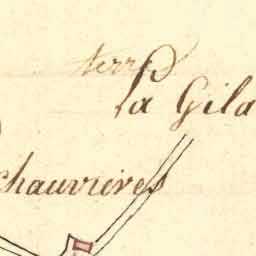 terr
La Gila
chauvieres